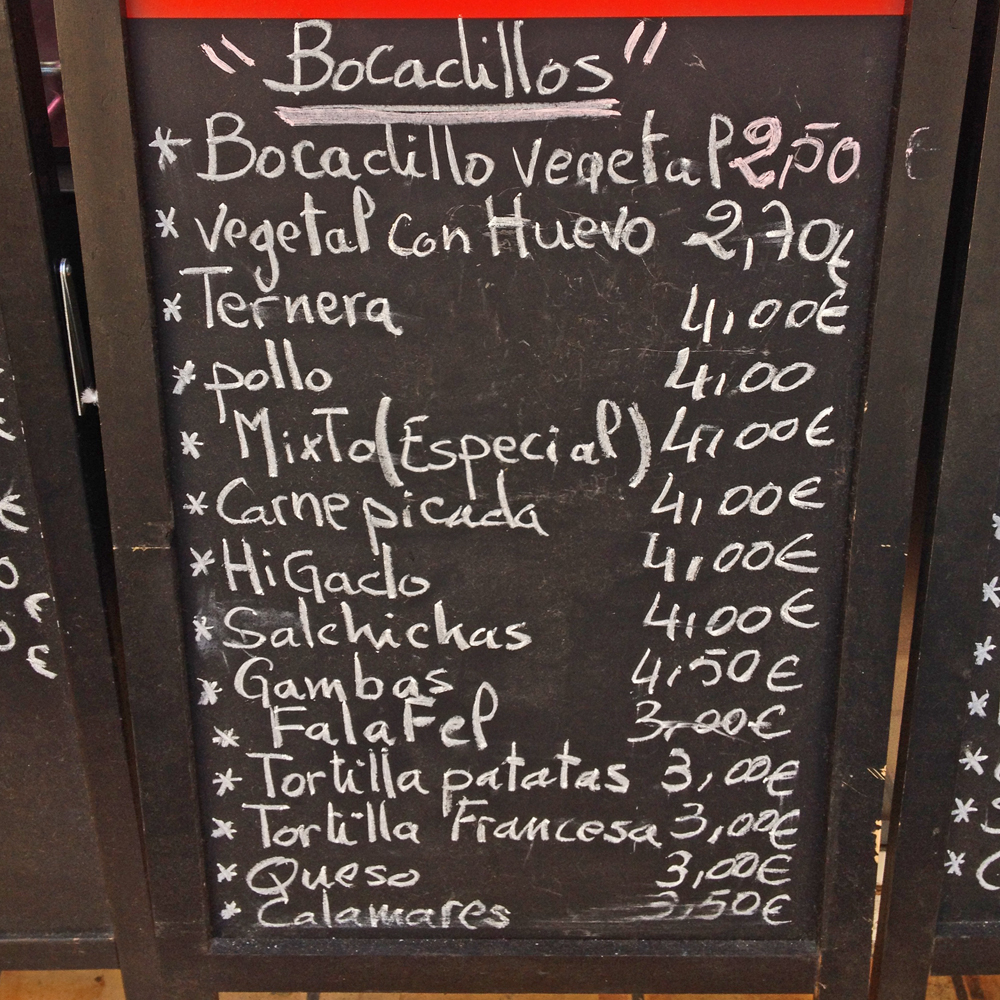 "Bocadillos"
* Bocadillo vegetal 2,50 €
* vegetal con Huevo 2,70€
* Ternera 4,00€
* pollo 4,00
* Mixto (Especial) 4,00€
* Carne picada 4,00€
* HiGado 4,00€
* Salchichas 4,00€
* Gambas 4,50€
* FalaFel 3,00€
* Tortilla patatas 3,00€
* Tortilla Francesa 3,00€
* Queso 3,00€
* Calamares 3,50€